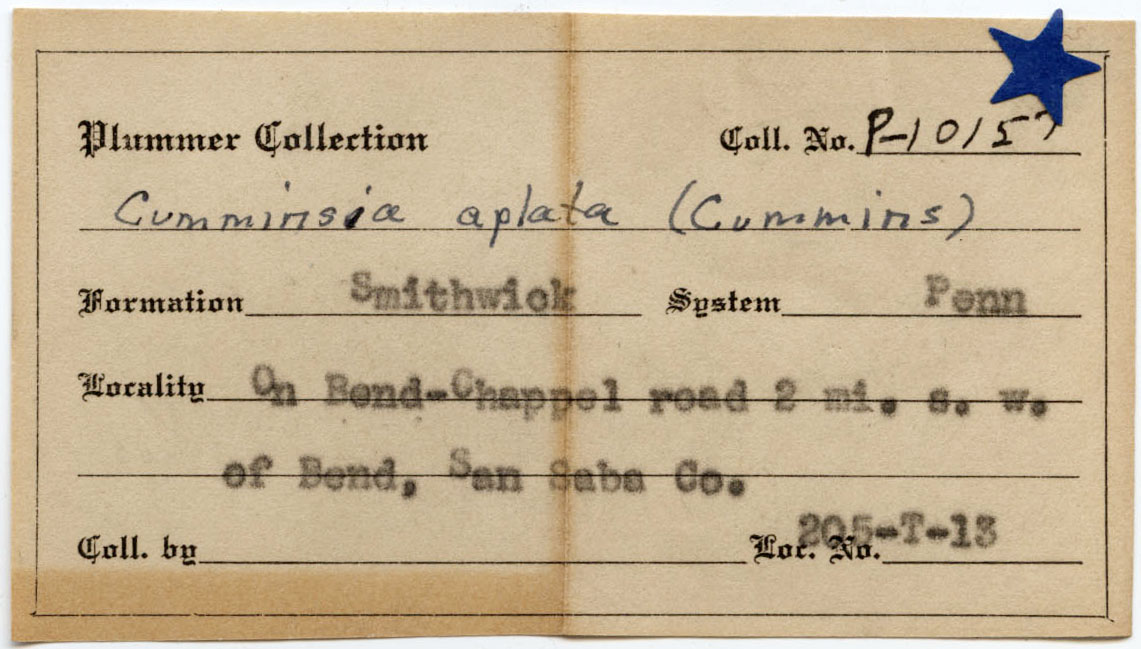 Plummer Collection Coll. No. P-10157
Cumminsia aplata (Cummins)
Formation Smithwick System Penn
Locality On Bend-Chappel road 2 mi. s. w.
of Bend, San Saba Co.
Coll. by Loc. No. 205-T-13